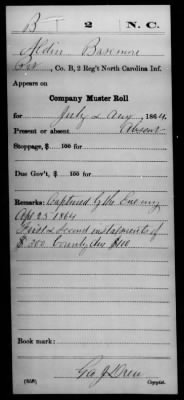 B 2 N.C.
Aldin Basemore
Pvt, Co. B, 2 Reg't North Carolina Inf.
Appears on
Company Muster Roll
for July & Aug, 1864.
Present or absent Absent
Stoppage, $ 100 for
Due Gov't, $ 100 for
Remarks: Captured by the Enemy
Apr 25 1864
First & Second instalments of
$ 200. bounty due $100
Book mark:
Geo J Drew
(858) Copyist.